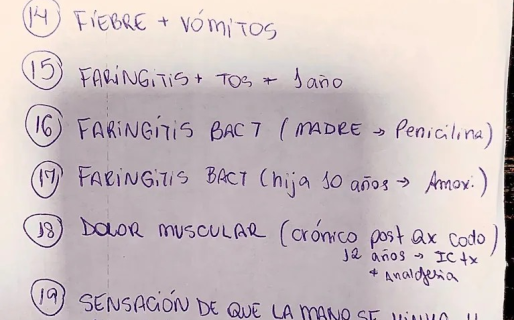 14 FIEBRE + VÓMITOS
15 FARINGITIS + TOS + 1 año
16 FARINGITIS BACT (MADRE → Penicilina)
17 FARINGITIS BACT (hija 10 años → Amoxi.)
18 DOLOR MUSCULAR (crónico post Qx codo)
12 años → ICtx
+ Analgesia
19 SENSACIÓN DE QUE LA MANO SE